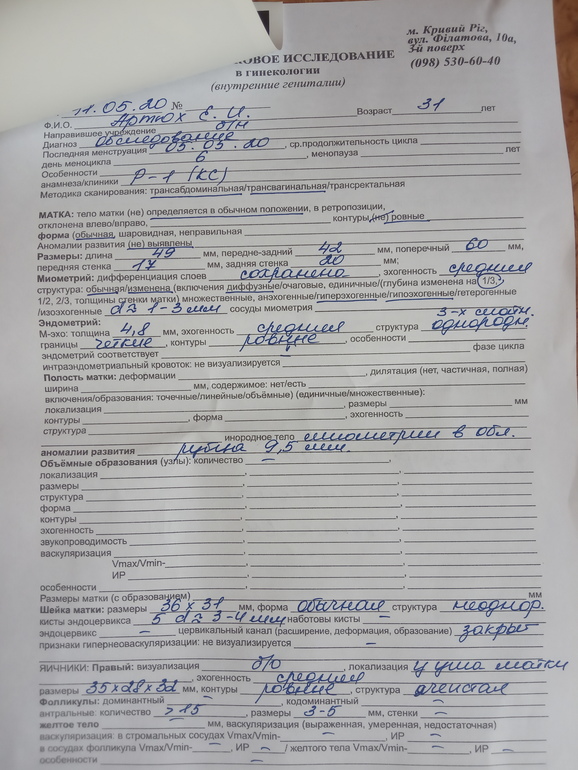 м. Кривий Ріг,
вул. Філатова, 10а,
3-й поверх
(098) 530-60-40
КОВОЕ ИССЛЕДОВАНИЕ
в гинекологии
(внутренние гениталии)
11.05.20 №
Ф.И.О. Артюх Є. И. Возраст 31 лет
Направившее учреждение б/н
Диагноз обследование
Последняя менструация 05.05.20, ср.продолжительность цикла
день меноцикла 6, менопауза лет
Особенности
анамнеза/клиники Р-1 (КС)
Методика сканирования: трансабдоминальная/трансвагинальная/трансректальная
МАТКА: тело матки (не) определяется в обычном положении, в ретропозиции,
отклонена влево/вправо, контуры (не) ровные
форма (обычная, шаровидная, неправильная
Аномалии развития (не) выявлены
Размеры: длина 49 мм, передне-задний 42 мм, поперечный 60 мм,
передняя стенка 17 мм, задняя стенка 20 мм;
Миометрий: дифференциация слоев сохранена, эхогенность средняя
структура: обычная/изменена (включения диффузные/очаговые, единичные/(глубина изменена на 1/3,
1/2, 2/3, толщины стенки матки) множественные, анэхогенные/гиперэхогенные/гипоэхогенные/гетерогенные
/изоэхогенные d≈ 1-3 мм сосуды миометрия
Эндометрий: 3-х слойн.
М-эхо: толщина 4,8 мм, эхогенность средняя структура однородн.
границы четкие, контуры ровные, особенности
эндометрий соответствует фазе цикла
интраэндометриальный кровоток: не визуализируется
Полость матки: деформации, дилятация (нет, частичная, полная)
ширина мм, содержимое: нет/есть
включения/образования: точечные/линейные/объёмные) (единичные/множественные):
локализация, размеры мм
контуры, форма, эхогенность
структура
инородное тело миометрий в обл.
аномалии развития рубца 9,5 мм.
Объёмные образования (узлы): количество –
локализация
размеры
структура
форма
контуры
эхогенность
звукопроводимость
васкуляризация
Vmax/Vmin-
ИР
особенности
Размеры матки (с образованием) мм
Шейка матки: размеры 36 х 31 мм, форма обычная структура неоднор.
кисты эндоцервикса 5 d≈ 3-4 мм наботовы кисты –
эндоцервикс – цервикальный канал (расширение, деформация, образование) закрыт
признаки гиперневоваскуляризации: не визуализируется –
ЯИЧНИКИ: Правый: визуализация б/о, локализация у угла матки
, эхогенность средняя
размеры 35х28х32 мм, контуры ровные, структура ячеистая
Фолликулы: доминантный –, кодоминантный –
антральные: количество >15, размеры 3-5 мм, стенки –
желтое тело – мм, васкуляризация (выраженная, умеренная, недостаточная)
васкуляризация: в стромальных сосудах Vmax/Vmin- –, ИР –
в сосудах фолликула Vmax/Vmin- –, ИР – / желтого тела Vmax/Vmin- –, ИР –
особенности –